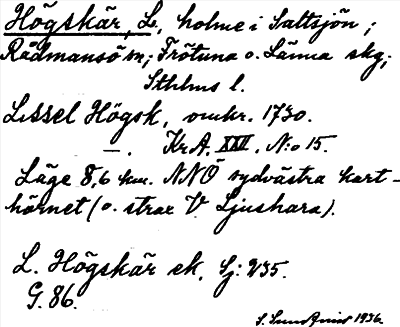 Högskär, L., holme i Saltsjön;
Rådmansö sn; Frötuna o. Länna skg;
Sthlms l.
Lissel Högsk, omkr. 1730.
—. Kr.A. XXV. N:o 15.
Läge 8,6 km. NNÖ sydvästra kart-
hörnet (o. strax V. Ljushara).
L. Högskär ek. Sj: 235.
G. 86.
1936.